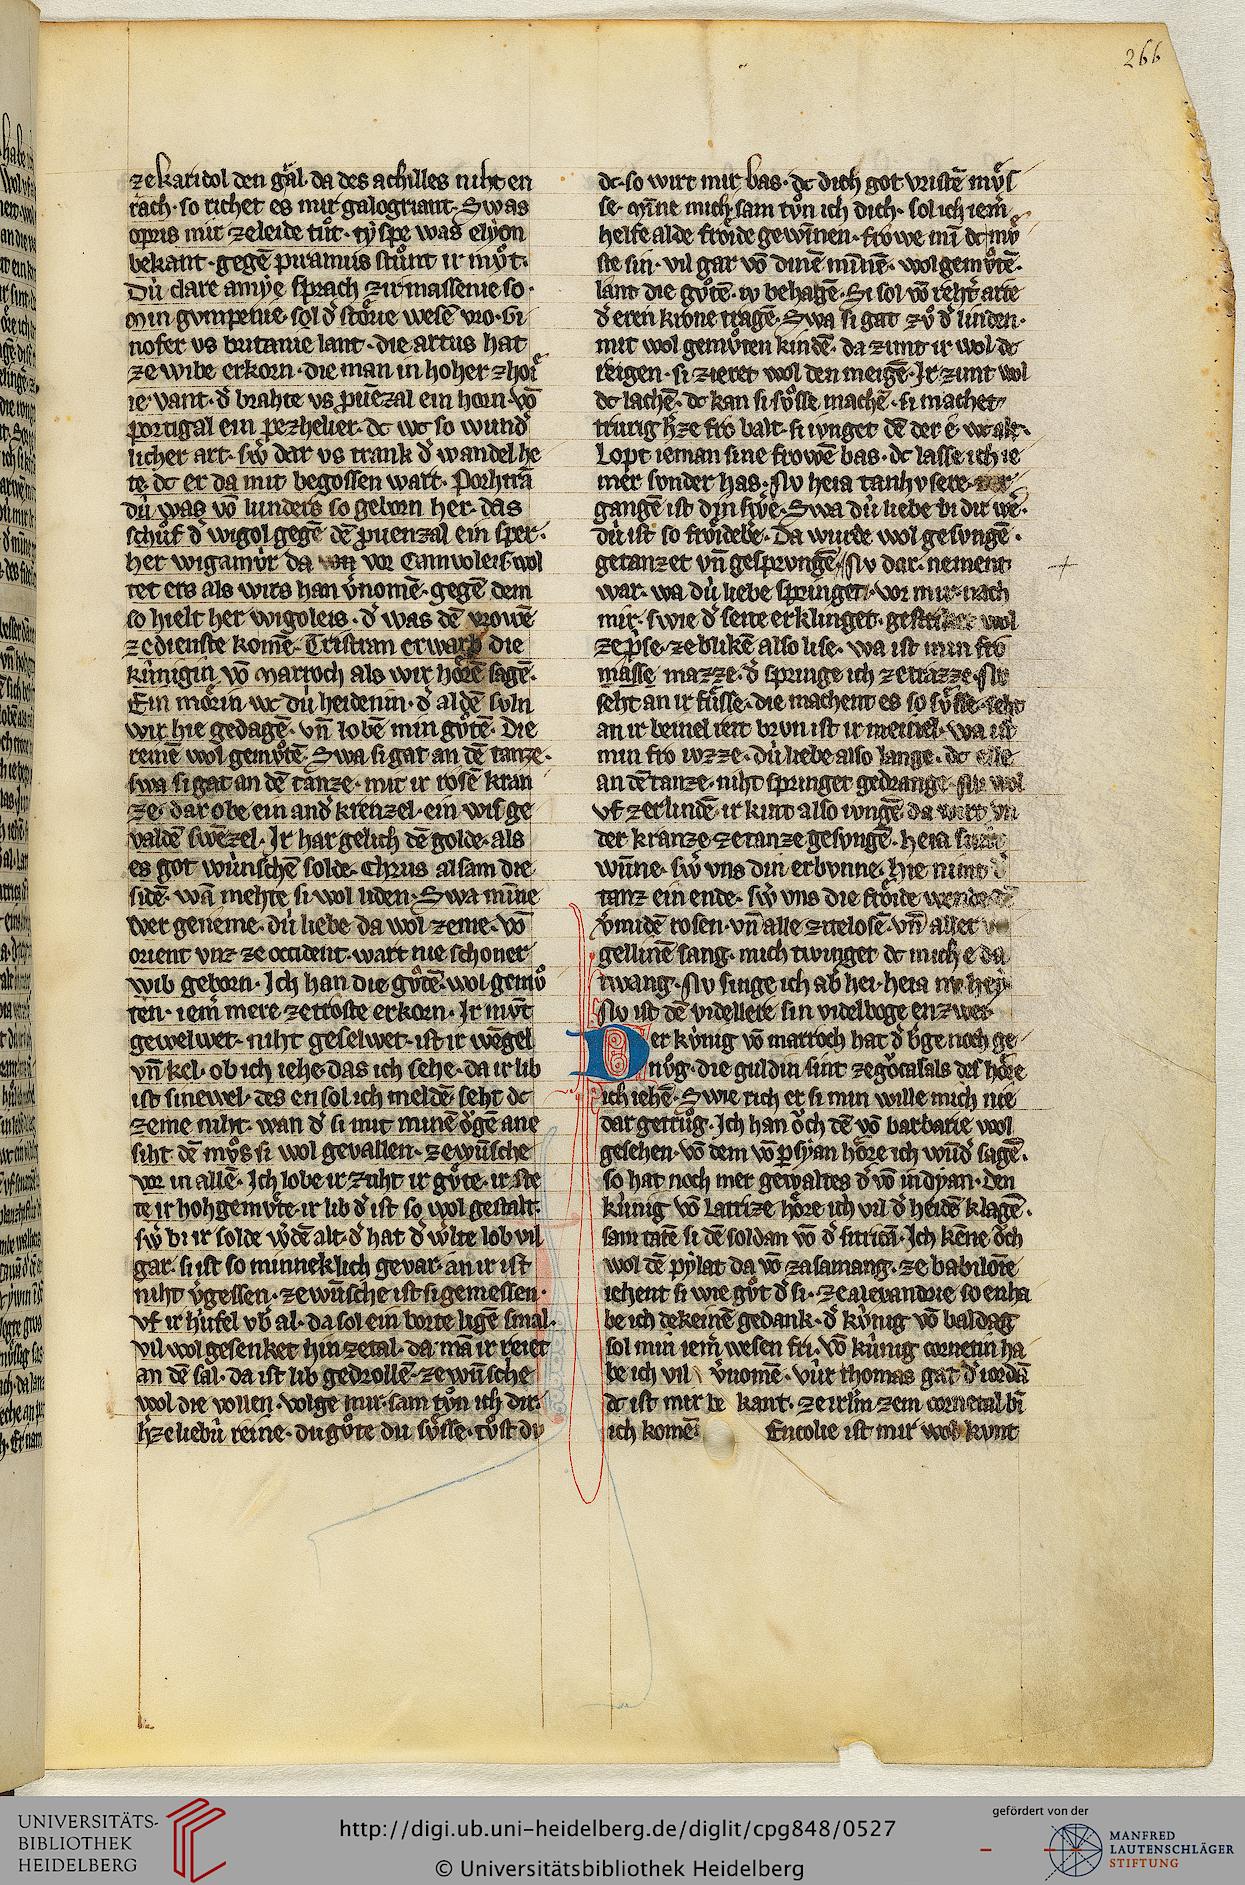 266
zekaridol den gͣal· da des achilles niht en
rach· so richet es mir galogriant· Swas
opris mir zeleide tuͦt· tyspe was elyon
bekant· gegē piramus stuͦnt ir muͦt·
Dú clare amye sprach zir massenie so·
Min gvmpenie· sol dˀ stoͤrie wesē vro· Gi
nofer vs britanie lant· die artus hat
ze wibe erkorn· die man in hoher zhoiˀ
ie vant· dˀ brahte vs ꝓuēzal ein horn· vō
portigal ein pezhelier· dc wc so wundˀ
licher art· swˀ dar vs trank dˀ wandel he
te· dc er da mit begossen wart· Porhtrā
dú was vō lunders so geborn her· das
schuͦf dˀ wigol gegē dē ꝓuenzal ein sper·
her wigamur da vor Camvoleis· wol
tet ers als wirs han vˀnomē· gegē dem
so hielt her wigoleis· dˀ was dē vrowē
zedienste komē· Tristran erwarb die
kúnigin vō Marroch als wir hoͤrē sagē·
Ein moͤrin wc dú heidenin· dˀ aldē svln
wir hie gedagē· vn̄ lobē min guͦtē· Die
reinē wol gemuͦtē· Swa si gat an dē tanze·
swa si gat an dē tanze· mit ir rosē kran
ze· dar obe ein andˀ krenzel· ein wis ge
valdē swēzel· Ir har gelich dē golde· als
es got wúnschē solde· Chrus alsam die
sidē· wā mehte si wol liden· Swa minne
wer geneme· dú liebe da wol zeme· vō
orient vnz ze occident· wart nie schoner
wib geborn· Ich han die guͦtē· wol gemuͦ
ten· iemˀ mere zetroste erkorn· Ir mvnt
gewelwet· niht geselwet· ist ir wēgel
vn̄ kel· ob ich iehe das ich sehe· da ir lib
ist sinewel· des en sol ich meldē· seht dc
zeme niht· wan dˀ si mit minē oͮgē ane
siht dē muͦs si wol gevallen· zewúnsche
vor in allē· Ich lobe ir zuht ir guͤte· ir ste
te ir hohgemuͤte· ir lib dˀ ist so wol gestalt·
swˀ bi ir solde wˀdē alt· dˀ hat dˀ wˀlte lob vil
gar· si ist so minneklich gevar· an ir ist
niht vˀgessen· zewúnsche ist si gemessen·
vf ir hufel vbˀ al· da sol ein borte ligē smal·
vil wol gesenket hin zetal· da mā ir reiet
an dē sal· da ist lib gedrollē· zewúnsche
wol die vollen· volge mir· sam tuͦn ich dir·
hˀze liebú reine· du guͦte du suͤsse· tuͦst dv
dc· so wirt mir bas· dc dich got vristē muͤs
se· Minne mich sam tuͦn ich dich· sol ich iemˀ
helfe alde froͤide gewinnen· frowe min dc muͦ
ste sin· vil gar vō dinē minnē· wol gemuͦtē·
lant die guͦtē· iv behagē· Si sol vō rehtˀ arte
dˀ eren krone tragē· Swa si gat zuͦ dˀ linden·
mit wol gemuͦten kindē· da zimt ir wol dc
reigen· si zieret wol den meigē· Ir zimt wol
dc lachē· dc kan si suͤsse machē· si machet
trurig hˀze fro balt· si iunget dē der e· wc alt·
Lopt ieman sine frowē bas· dc lasse ich ie
mer svnder has· Nv heia tanhvsere· zer
gangē ist din swˀe· Swa dú liebe bi dir wˀe·
dú ist so froͤidebˀe· Da wurde wol gesvngē·
getanzet vn̄ gesprvngē· Nv dar· nement
war· wa dú liebe springet· vor mir· nach
mir· swie dˀ seite erklinget· gestrichen wol
ze pˀse· ze blikē also lise· wa ist min fro
masse mazze· dˀ springe ich zetrazze· Nv
seht an ir fuͤsse· die machent es so suͤsse· seht
an ir beinel reit brvn ist ir meinel· wa ist
min fro iuzze· dú liebe also lange· dc elle
an dē tanze· niht springet gedrange· Nv wol
vf zer lindē ir kint also ivngē· da wirt vn
der kranze zetanze gesvngē· heia svmˀ
wúnne· swˀ vns din erbvnne· Hie nimt dˀ
tanz ein ende· swˀ vns die froͤide wende dē
vˀmidē rosen· vn̄ alle zitelosē· vn̄ aller
gellinē sang· mich twinget dc mich e da
twang· Nv singe ich abˀ hei· heia nv hey·
Nv ist dē videllere sin videlboge enzwei
Der kúnig vō marroch hat dˀ bˀge noch ge
nuͦg· die guldin sint zegoͮcasals des hoͤre
ich iehē· Swie rich er si min wille mich nie
dar getruͦg· Ich han oͮch dē vō barbarie wol
gesehen· vō dem vō pˀsyan hoͤre ich wundˀ sagē·
so hat noch mer gewaltes dˀ vō indyan· Den
kúnig vō Latrize hoͤre ich vil dˀ heidē klagē·
sam tatē si dē soldan vō dˀ surien· Ich kēne oͮch
wol dē pylat da vō zasamang· ze babilone
iehent si wie guͦt dˀ si· ze alexandrie so enha
be ich dekeinē gedank· dˀ kúnig vō baldag
sol min iemˀ wesen fri· vō kúnig cornetin ha
be ich vil vˀnomē· vúr thomas gat dˀ iordā
dc ist mir be kant· zeirlˀm zem cornetal bī
ich komē· Encolie ist mir wol kvnt
UNIVERSITÄTS-
BIBLIOTHEK
HEIDELBERG
http://digi.ub.uni-heidelberg.de/diglit/cpg848/0527
© Universitätsbibliothek Heidelberg
gefördert von der
MANFRED
LAUTENSCHLÄGER
STIFTUNG